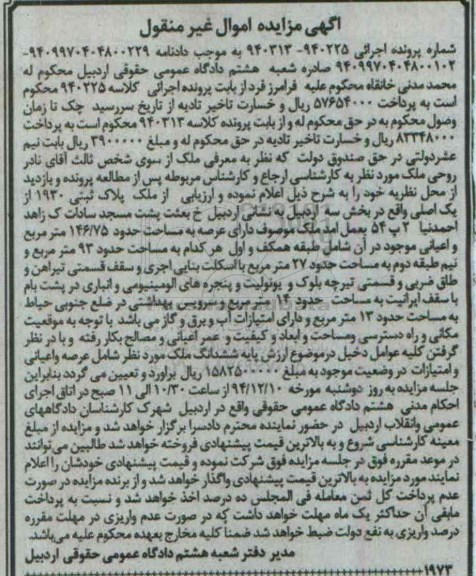 آگهی مزایده اموال غیر منقول
شماره پرونده اجرائی ۹۴۰۲۲۵- ۹۴۰۳۱۳ به موجب دادنامه ۹۴۰۹۹۷۰۴۰۴۸۰۰۲۲۹-
۹۴۰۹۹۷۰۴۰۴۸۰۰۱۰۲ صادره شعبه هشتم دادگاه عمومی حقوقی اردبیل محکوم له
محمد مدنی خانقاه محکوم علیه فرامرز فرد از بابت پرونده اجرائی کلاسه ۹۴۰۲۲۵ محکوم
است به پرداخت ۵۷۶۵۴۰۰۰ ریال و خسارت تاخیر تادیه از تاریخ سررسید چک تا زمان
وصول محکوم به در حق محکوم له و از بابت پرونده کلاسه ۹۴۰۳۱۳ محکوم است به پرداخت
۸۳۳۴۸۰۰۰ ریال و خسارت تاخیر تادیه در حق محکوم له و مبلغ ۳۹۰۰۰۰۰ ریال بابت نیم
عشردولتی در حق صندوق دولت که نظر به معرفی ملک از سوی شخص ثالث آقای نادر
روحی ملک مورد نظر به کارشناسی ارجاع و کارشناس مربوطه پس از مطالعه پرونده و بازدید
از محل نظریه خود را به شرح ذیل اعلام نموده و ارزیابی از ملک پلاک ثبتی ۱۹۳۰ از
یک اصلی واقع در بخش سه اردبیل به نشانی اردبیل خ بعثت پشت مسجد سادات ک زاهد
احمدنیا ۲ پ ۵۴ بعمل آمد ملک موصوف دارای عرصه به مساحت حدود ۱۴۶/۷۵ متر مربع
و اعیانی موجود در آن شامل طبقه همکف و اول هر کدام به مساحت حدود ۹۳ متر مربع و
نیم طبقه دوم به مساحت حدود ۲۷ متر مربع با اسکلت بنایی آجری و سقف قسمتی تیرآهن و
طاق ضربی و قسمتی تیرچه بلوک و یونولیت و پنجره های آلومینیومی و انباری در پشت بام
با سقف ایرانیت به مساحت حدود ۱۴ متر مربع و سرویس بهداشتی در ضلع جنوبی حیاط
به مساحت حدود ۱۳ متر مربع و دارای امتیازات آب و برق و گاز می باشد با توجه به موقعیت
مکانی و راه دسترسی ومساحت و ابعاد و کیفیت و عمر اعیانی و مصالح بکار رفته و با در نظر
گرفتن کلیه عوامل دخیل درموضوع ارزش پایه ششدانگ ملک مورد نظر شامل عرصه واعیانی
و امتیازات در وضعیت موجود به مبلغ ۱۵۸۲۵۰۰۰۰۰ ریال برآورد و تعیین می گردد بنابراین
جلسه مزایده به روز دوشنبه مورخه ۹۴/۱۲/۱۰ از ساعت ۱۰/۳۰ الی ۱۱ صبح در اتاق اجرای
احکام مدنی هشتم دادگاه عمومی حقوقی واقع در اردبیل شهرک کارشناسان دادگاههای
عمومی وانقلاب اردبیل در حضور نماینده محترم دادسرا برگزار خواهد شد و مزایده از مبلغ
معینه کارشناسی شروع و به بالاترین قیمت پیشنهادی فروخته خواهد شد طالبین می توانند
در موعد مقرره فوق در جلسه مزایده فوق شرکت نموده و قیمت پیشنهادی خودشان را اعلام
نمایند مورد مزایده به بالاترین قیمت پیشنهادی واگذار خواهد شد و از برنده مزایده در صورت
عدم پرداخت کل ثمن معامله فی المجلس ده درصد اخذ خواهد شد و نسبت به پرداخت
مابقی آن حداکثر یک ماه مهلت خواهد داشت که در صورت عدم واریزی در مهلت مقرره
درصد واریزی به نفع دولت ضبط خواهد شد ضمنا کلیه مخارج بعهده محکوم علیه می باشد.
مدیر دفتر شعبه هشتم دادگاه عمومی حقوقی اردبیل
۱۹۷۳